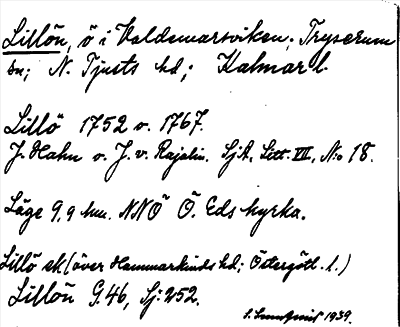 Lillön, ö i Valdemarsviken; Tryserum
sn; N. Tjusts hd; Kalmar l.
Lillö 1752 o. 1767.
J. Hahn o. J. v. Rajalin. SjA, Litt. VII, No 18.
Läge 9,9 km. NNÖ Ö. Eds kyrka.
Lillö sk (över Hammarkinds hd; Östergötl. l.)
Lillön G.46, Sj:252.
1939.